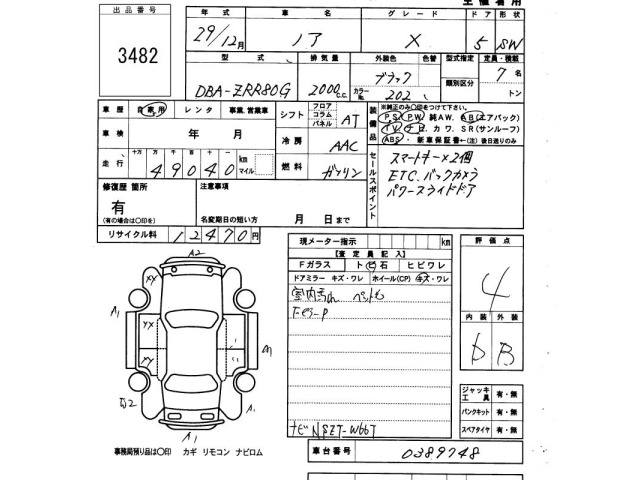 出品番号
3482
年式 車名 グレード ドア 形状
29/12月 ノア X 5 SW
型式 排気量 外装色 色替 型式指定 定員・積載
DBA-ZRR80G 2000c.c. ブラック 7名
カラーNo. 202 類別区分 トン
車歴 自家用 レンタ 事業.営業車
車検 年 月
走行 十万 万 千 百 十 km マイル
49040
シフト フロア コラム パネル AT
冷房 AAC
燃料 ガソリン
装備品 ※純正のみ〇印をつけて下さい。
PS PW 純AW. AB(エアバック)
TV ナビ. カワ. SR(サンルーフ)
ABS ・新車保証書←(注)後日送りのみ
セールスポイント
スマートキー×2個
ETC.バックカメラ
パワースライドドア
修復歴 箇所 注意事項
有
(有の場合は〇印を) 名変期日の短い方 月 日まで
リサイクル料 12470円
現メーター指示 km
【査定員記入】
Fガラス トビ石 ヒビワレ
ドアミラー キズ・ワレ ホイール(CP) キズ・ワレ
室内汚れ
ナビ NSZT-W66T
評価点
4
内装 外装
B
ジャッキ工具 有・無
パンクキット 有・無
スペアタイヤ 有・無
A2
XX XX
A1
YX
XX
A1
A1
A1
事務局預り品は〇印 カギ リモコン ナビロム
車台番号 0389748